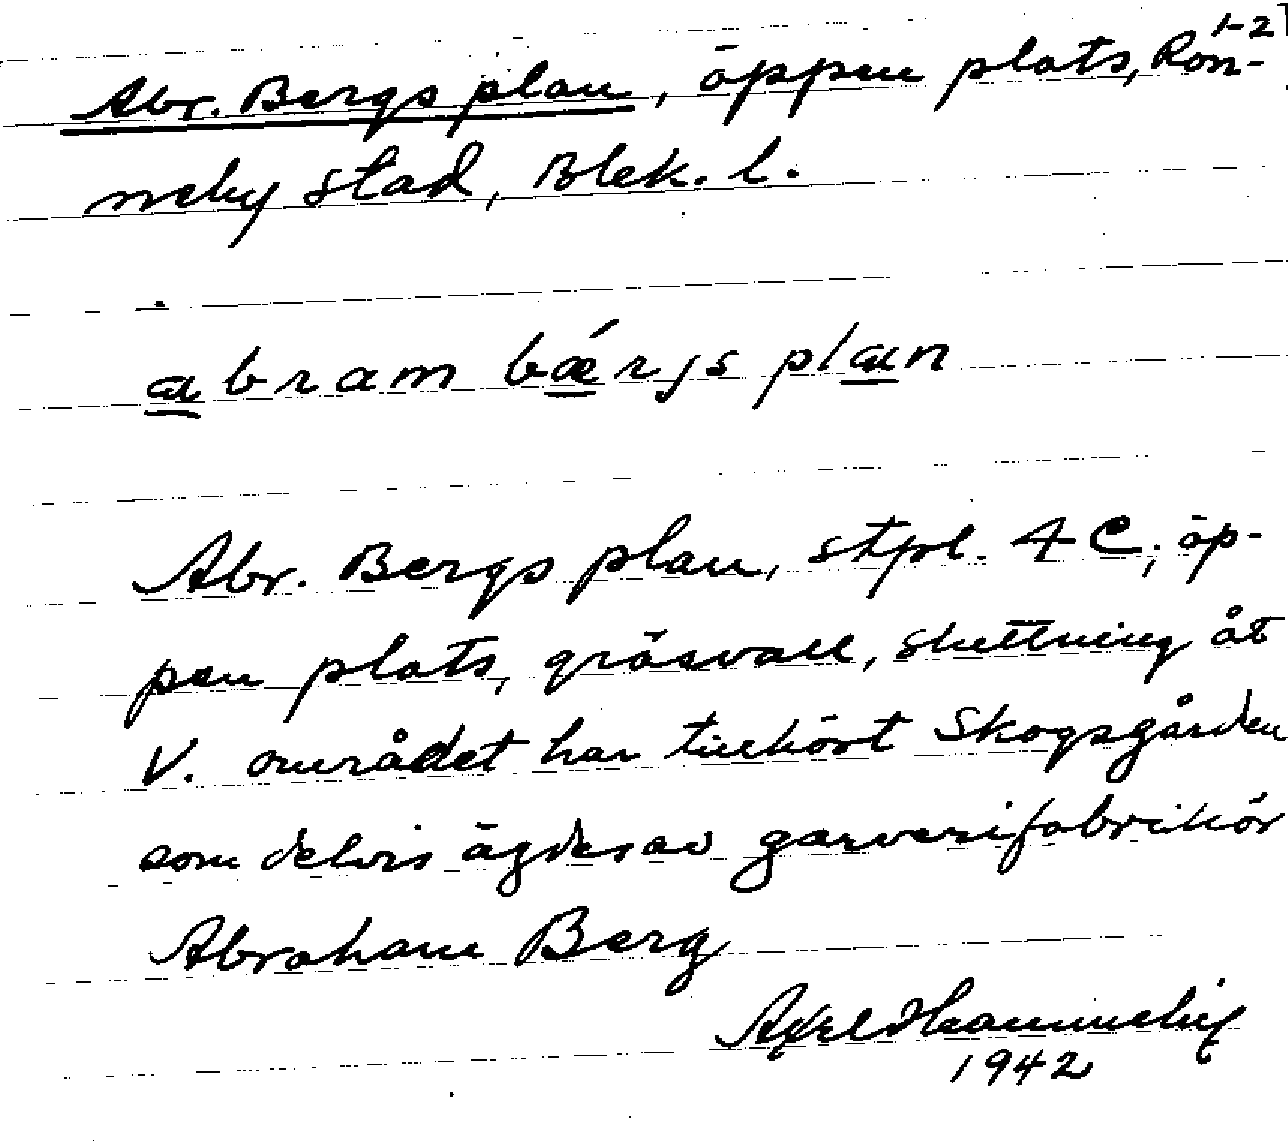 Abr. Bergs plan, öppen plats, Ron- 1-2
neby stad, Blek. l.
abram bǽrjs plan
Abr. Bergs plan, stpl. 4 C, öp-
pen plats, gräsvall, sluttning åt
V. området har tillhört Skogsgården
som delvis ägdes av garverifabrikör
Abraham Berg
Axel
1942